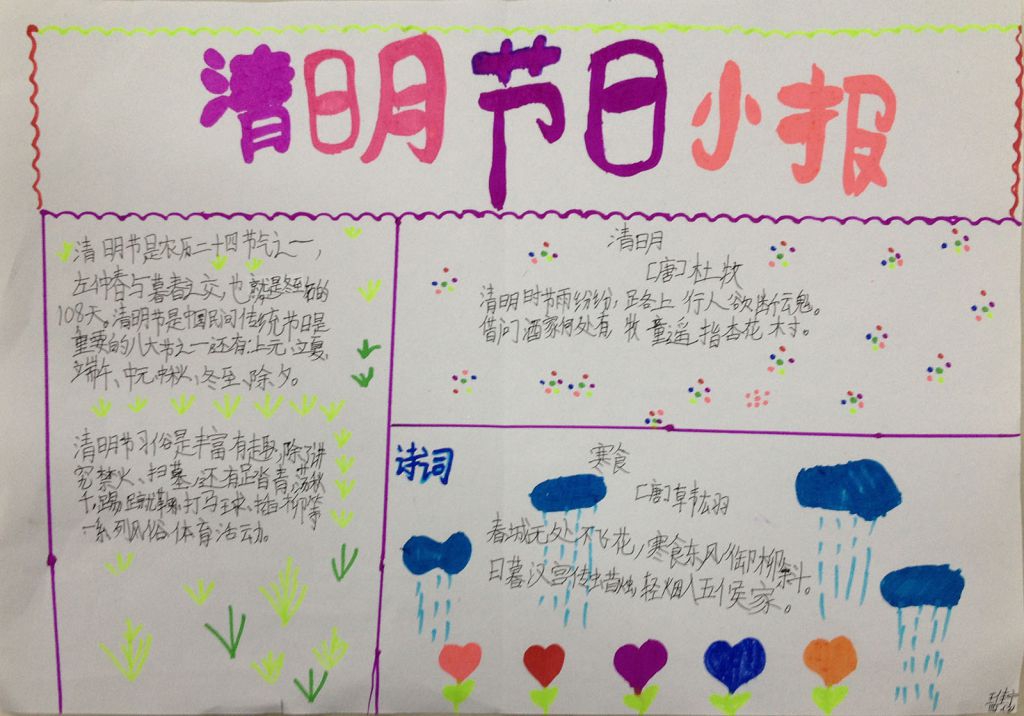 清明节日小报
清明节是农历二十四节气之一,
在仲春与暮春之交,也就是冬至后的
108天。清明节是中国民间传统节日是
重要的八大节之一还有:上元、立夏、
端午、中元中秋、冬至、除夕。
清明节习俗是丰富有趣,除了讲
究禁火、扫墓,还有踏青、荡秋
千,踢蹴鞠、打马球、插柳等
一系列风俗体育活动。
清明
[唐]杜牧
清明时节雨纷纷,路上行人欲断魂。
借问酒家何处有,牧童遥指杏花村。
诗词
寒食
[唐]韩翃
春城无处不飞花,寒食东风御柳斜。
日暮汉宫传蜡烛,轻烟入五侯家。